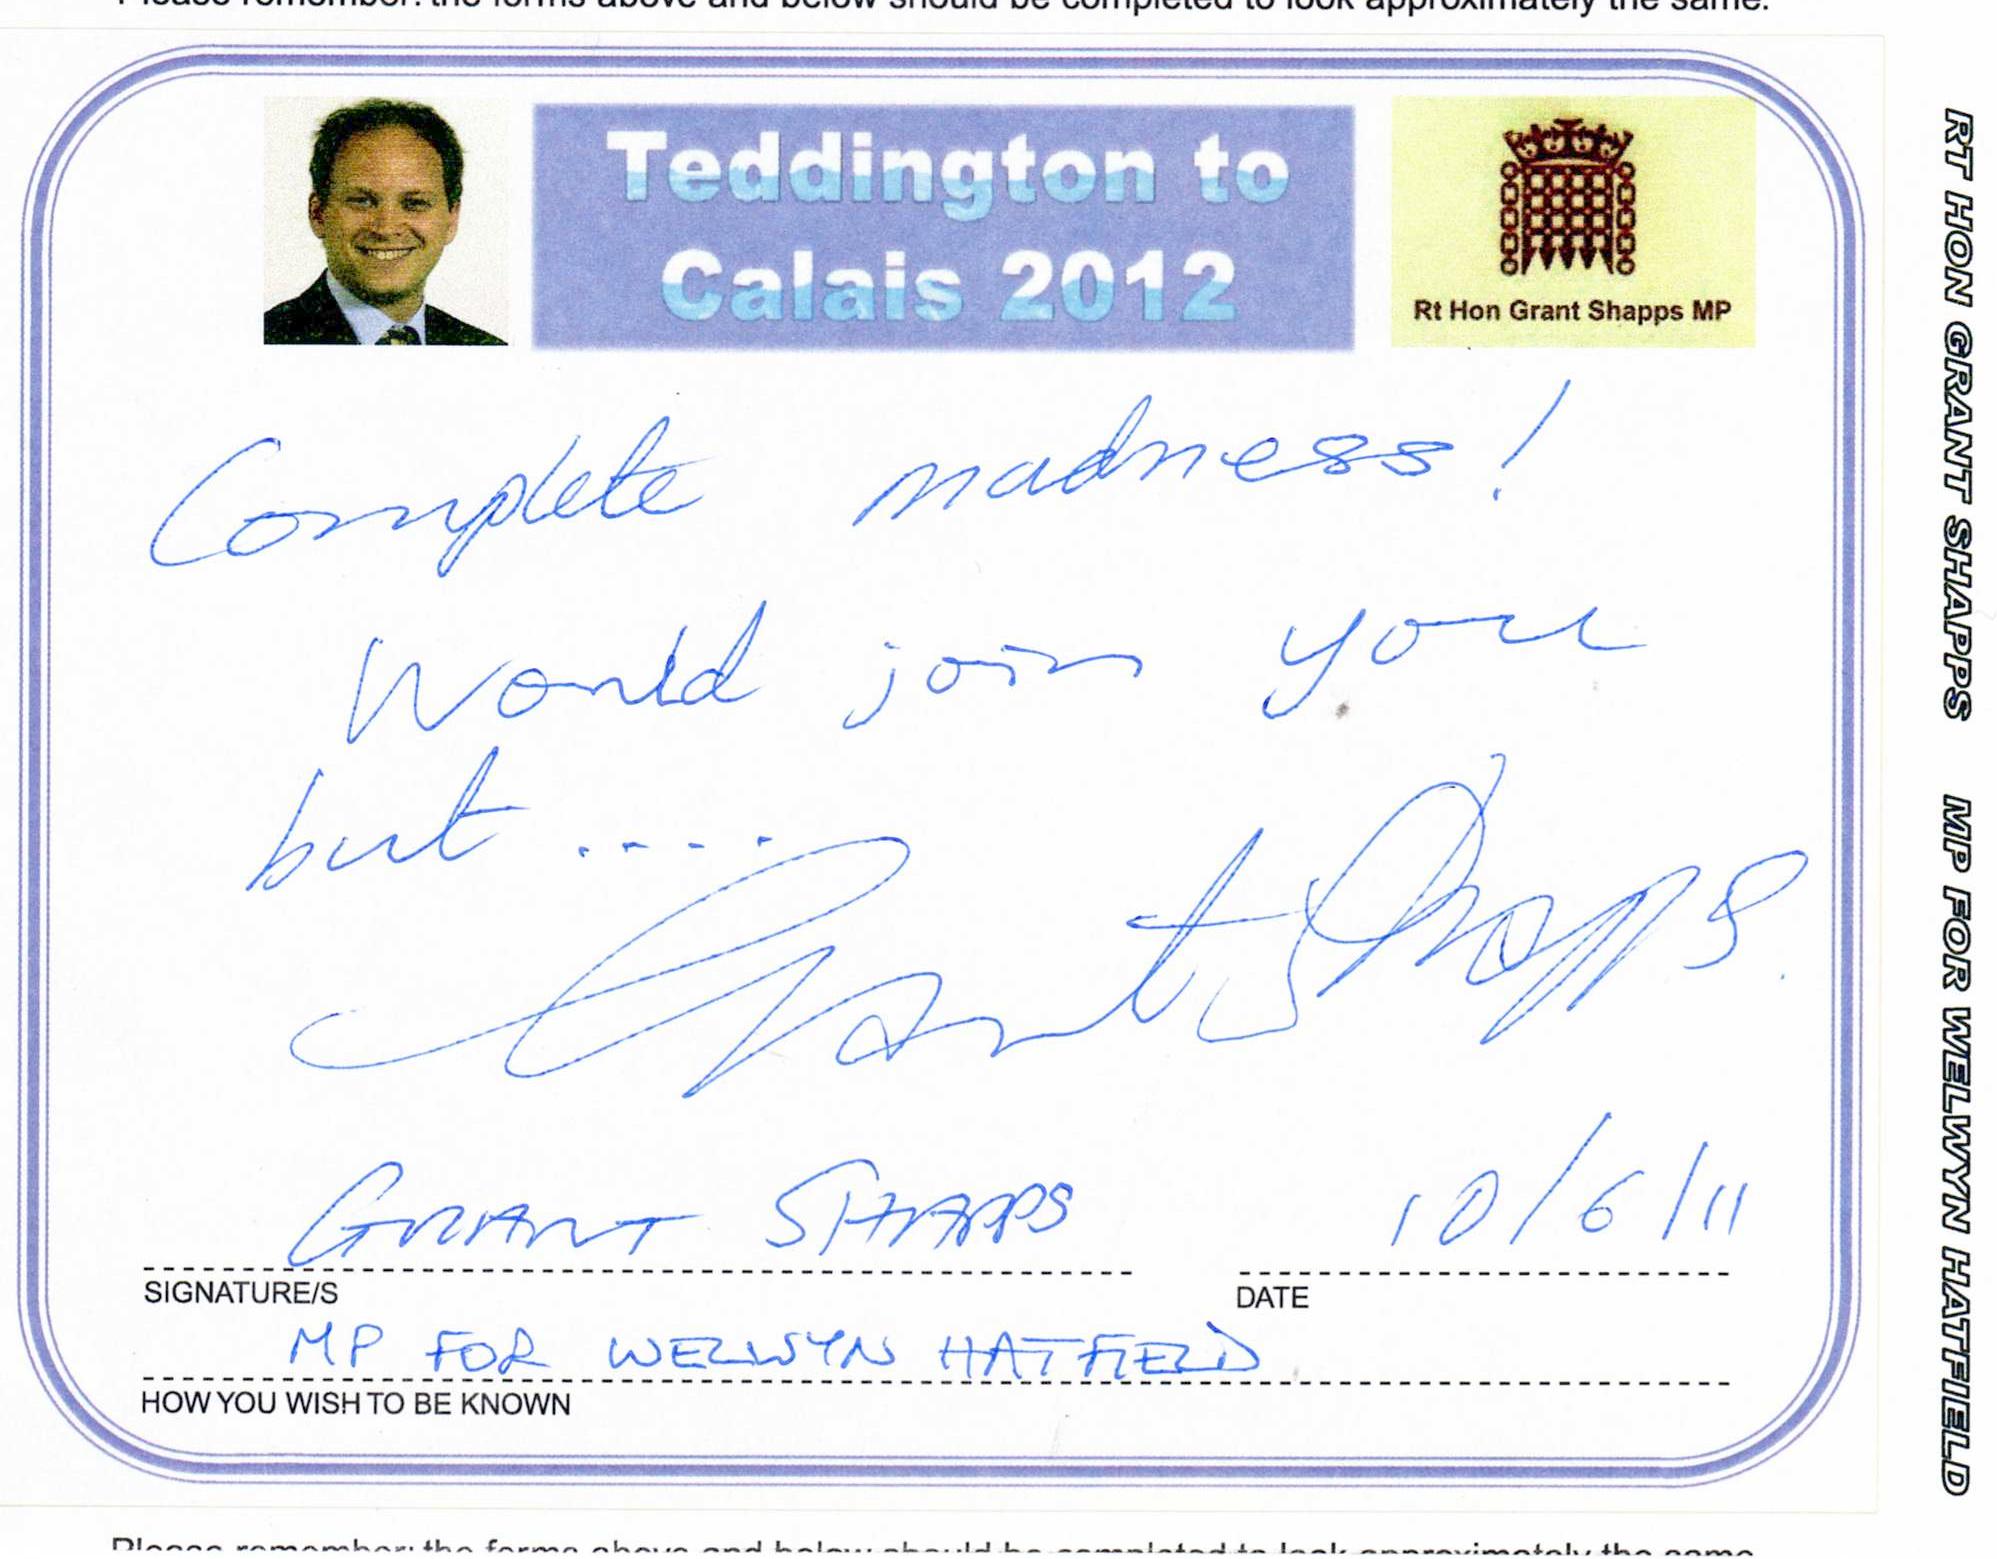 Please remember: the forms above and below should be completed to look approximately the same.
Teddington to
Calais 2012
Rt Hon Grant Shapps MP
Complete madness!
Would join you
but ....
Grant Shapps.
GRANT SHAPPS 10/6/11
SIGNATURE/S DATE
MP FOR WELWYN HATFIELD
HOW YOU WISH TO BE KNOWN
RT HON GRANT SHAPPS MP FOR WELWYN HATFIELD
Please remember: the forms above and below should be completed to look approximately the same